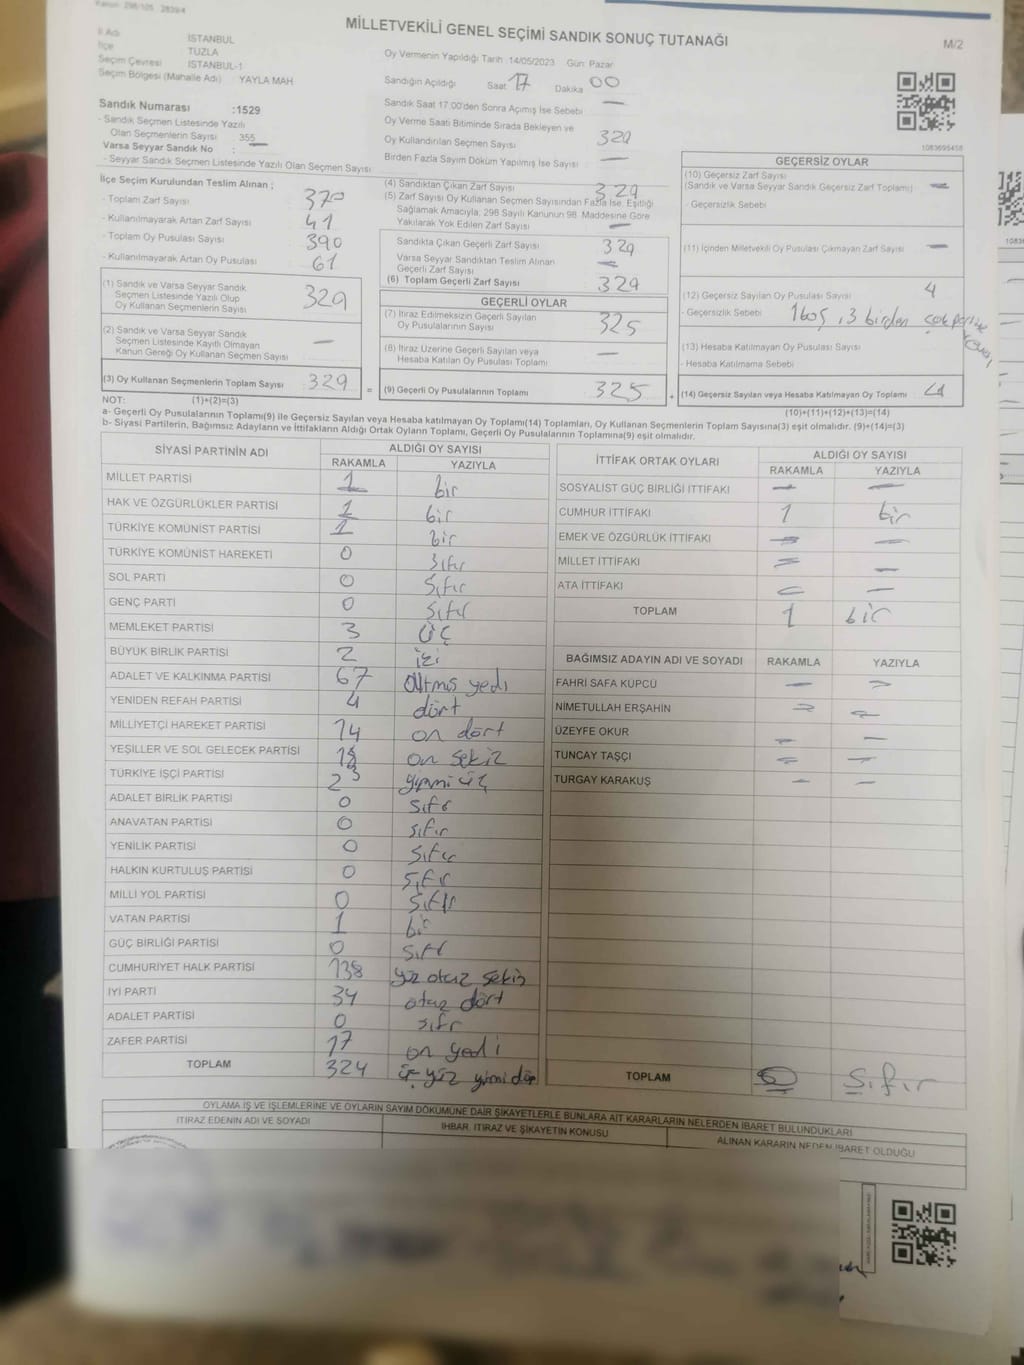 Kanun: 298/105 2839/4
MİLLETVEKİLİ GENEL SEÇİMİ SANDIK SONUÇ TUTANAĞI
M/2
İl Adı İSTANBUL
İlçe TUZLA
Seçim Çevresi İSTANBUL-1
Seçim Bölgesi (Mahalle Adı) YAYLA MAH
Sandık Numarası :1529
- Sandık Seçmen Listesinde Yazılı
Olan Seçmenlerin Sayısı 355
Varsa Seyyar Sandık No :
- Seyyar Sandık Seçmen Listesinde Yazılı Olan Seçmen Sayısı
Oy Vermenin Yapıldığı Tarih :14/05/2023 Gün: Pazar
Sandığın Açıldığı Saat 17 Dakika 00
Sandık Saat 17:00'den Sonra Açımış İse Sebebi —
Oy Verme Saati Bitiminde Sırada Bekleyen ve
Oy Kullandırılan Seçmen Sayısı 329
Birden Fazla Sayım Döküm Yapılmış İse Sayısı —
1083695458
İlçe Seçim Kurulundan Teslim Alınan ;
- Toplam Zarf Sayısı 370
- Kullanılmayarak Artan Zarf Sayısı 41
- Toplam Oy Pusulası Sayısı 390
- Kullanılmayarak Artan Oy Pusulası 61
(1) Sandık ve Varsa Seyyar Sandık
Seçmen Listesinde Yazılı Olup
Oy Kullanan Seçmenlerin Sayısı 329
(2) Sandık ve Varsa Seyyar Sandık
Seçmen Listesinde Kayıtlı Olmayan
Kanun Gereği Oy Kullanan Seçmen Sayısı —
(3) Oy Kullanan Seçmenlerin Toplam Sayısı 329 =
(4) Sandıktan Çıkan Zarf Sayısı 329
(5) Zarf Sayısı Oy Kullanan Seçmen Sayısından Fazla İse, Eşitliği
Sağlamak Amacıyla, 298 Sayılı Kanunun 98. Maddesine Göre
Yakılarak Yok Edilen Zarf Sayısı —
Sandıkta Çıkan Geçerli Zarf Sayısı 329
Varsa Seyyar Sandıktan Teslim Alınan
Geçerli Zarf Sayısı —
(6) Toplam Geçerli Zarf Sayısı 329
GEÇERLİ OYLAR
(7) İtiraz Edilmeksizin Geçerli Sayılan
Oy Pusulalarının Sayısı 325
(8) İtiraz Üzerine Geçerli Sayılan veya
Hesaba Katılan Oy Pusulası Toplamı —
(9) Geçerli Oy Pusulalarının Toplamı 325 +
GEÇERSİZ OYLAR
(10) Geçersiz Zarf Sayısı
(Sandık ve Varsa Seyyar Sandık Geçersiz Zarf Toplamı) —
- Geçersizlik Sebebi
(11) İçinden Milletvekili Oy Pusulası Çıkmayan Zarf Sayısı —
(12) Geçersiz Sayılan Oy Pusulası Sayısı 4
- Geçersizlik Sebebi 1 boş, 3 birden çok partiye
(13) Hesaba Katılmayan Oy Pusulası Sayısı
- Hesaba Katılmama Sebebi
(14) Geçersiz Sayılan veya Hesaba Katılmayan Oy Toplamı 4
NOT: (1)+(2)=(3)
(10)+(11)+(12)+(13)=(14)
a- Geçerli Oy Pusulalarının Toplamı(9) ile Geçersiz Sayılan veya Hesaba katılmayan Oy Toplamı(14) Toplamları, Oy Kullanan Seçmenlerin Toplam Sayısına(3) eşit olmalıdır. (9)+(14)=(3)
b- Siyasi Partilerin, Bağımsız Adayların ve İttifakların Aldığı Ortak Oyların Toplamı, Geçerli Oy Pusulalarının Toplamına(9) eşit olmalıdır.
SİYASİ PARTİNİN ADI ALDIĞI OY SAYISI
RAKAMLA YAZIYLA
MİLLET PARTİSİ 1 bir
HAK VE ÖZGÜRLÜKLER PARTİSİ 1 bir
TÜRKİYE KOMÜNİST PARTİSİ 1 bir
TÜRKİYE KOMÜNİST HAREKETİ 0 sıfır
SOL PARTİ 0 sıfır
GENÇ PARTİ 0 sıfır
MEMLEKET PARTİSİ 3 üç
BÜYÜK BİRLİK PARTİSİ 2 iki
ADALET VE KALKINMA PARTİSİ 67 altmış yedi
YENİDEN REFAH PARTİSİ 4 dört
MİLLİYETÇİ HAREKET PARTİSİ 14 on dört
YEŞİLLER VE SOL GELECEK PARTİSİ 18 on sekiz
TÜRKİYE İŞÇİ PARTİSİ 23 yirmi üç
ADALET BİRLİK PARTİSİ 0 sıfır
ANAVATAN PARTİSİ 0 sıfır
YENİLİK PARTİSİ 0 sıfır
HALKIN KURTULUŞ PARTİSİ 0 sıfır
MİLLİ YOL PARTİSİ 0 sıfır
VATAN PARTİSİ 1 bir
GÜÇ BİRLİĞİ PARTİSİ 0 sıfır
CUMHURİYET HALK PARTİSİ 138 yüz otuz sekiz
İYİ PARTİ 34 otuz dört
ADALET PARTİSİ 0 sıfır
ZAFER PARTİSİ 17 on yedi
TOPLAM 324 üç yüz yirmi dört
İTTİFAK ORTAK OYLARI ALDIĞI OY SAYISI
RAKAMLA YAZIYLA
SOSYALİST GÜÇ BİRLİĞİ İTTİFAKI — —
CUMHUR İTTİFAKI 1 bir
EMEK VE ÖZGÜRLÜK İTTİFAKI — —
MİLLET İTTİFAKI — —
ATA İTTİFAKI — —
TOPLAM 1 bir
BAĞIMSIZ ADAYIN ADI VE SOYADI RAKAMLA YAZIYLA
FAHRİ SAFA KÜPCÜ — —
NİMETULLAH ERŞAHİN — —
ÜZEYFE OKUR — —
TUNCAY TAŞÇI — —
TURGAY KARAKUŞ — —
TOPLAM 0 sıfır
OYLAMA İŞ VE İŞLEMLERİNE VE OYLARIN SAYIM DÖKÜMÜNE DAİR ŞİKAYETLERLE BUNLARA AİT KARARLARIN NELERDEN İBARET BULUNDUKLARI
İTİRAZ EDENİN ADI VE SOYADI İHBAR, İTİRAZ VE ŞİKAYETİN KONUSU ALINAN KARARIN NEDEN İBARET OLDUĞU